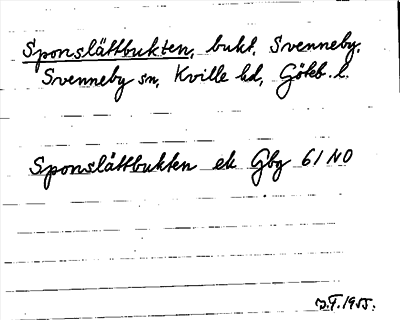 Sponslättbukten, bukt, Svenneby.
Svenneby sn, Kville hd, Göteb. l.
Sponslättbukten ek Gbg 61 NO
1955.